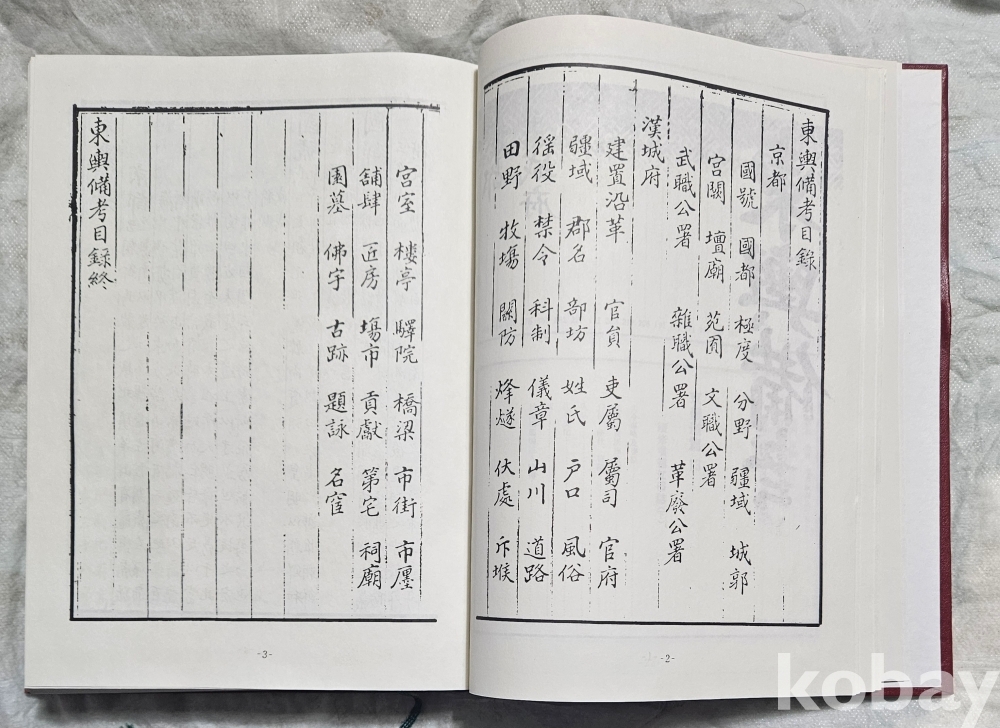 東輿備考目錄
京都
國號 國都 極度 分野 疆域 城郭
宮闕 壇廟 苑囿 文職公署
武職公署 雜職公署 革廢公署
漢城府
建置沿革 官員 吏屬 屬司 官府
疆域 郡名 部坊 姓氏 戶口 風俗
徭役 禁令 科制 儀章 山川 道路
田野 牧場 關防 烽燧 伏處 斥堠
-2-
宮室 樓亭 驛院 橋梁 市街 市廛
舖肆 匠房 場市 貢獻 第宅 祠廟
園墓 佛宇 古跡 題詠 名宦
東輿備考目錄終
-3-
kobay